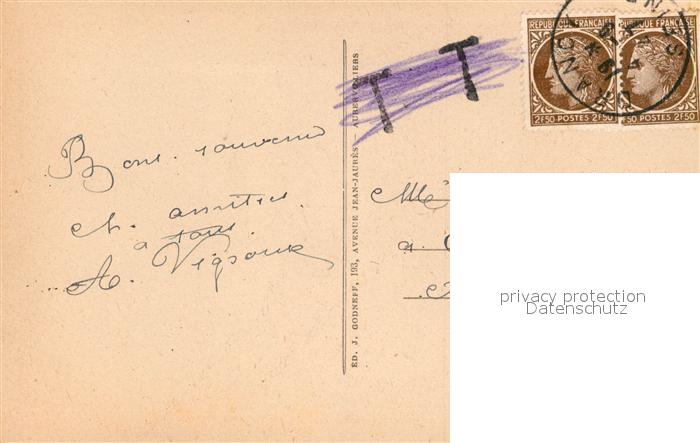 Bons souvenirs
et amitiés
à tous
A.
ÉD. J. GODNEFF, 193, AVENUE JEAN-JAURÈS — AUBERVILLIERS
T T
REPUBLIQUE FRANÇAISE
2F50 POSTES 2F50
REPUBLIQUE FRANÇAISE
2F50 POSTES 2F50
a
privacy protection
Datenschutz